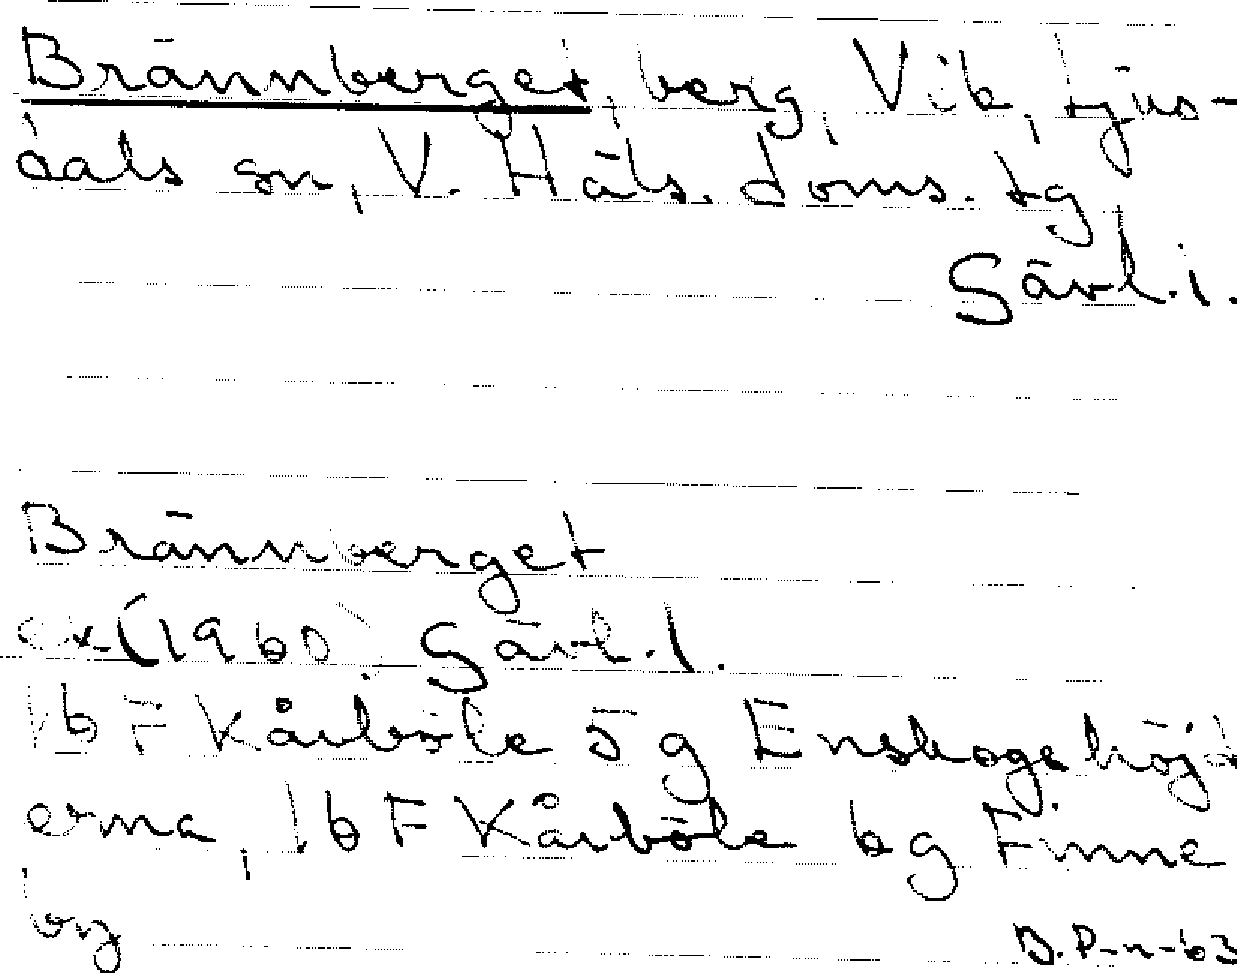 Brännberget, berg, Vik, Ljus-
dals sn, V. Häls. doms. tg
Gävl. l.
Brännberget
ek (1960) Gävl. l.
16 F Kårböle 5 g Enskogshöjd
erna, 16 F Kårböle 6 g Finne
by
B. P-n-63